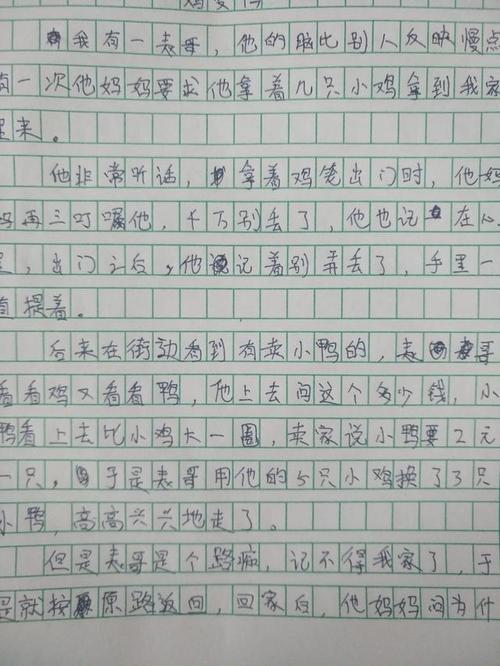 鸡变鸭
我有一表哥，他的脑比别人反映慢点
有一次他妈妈要求他拿着几只小鸡拿到我家
里来。
他非常听话，拿着鸡笼出门时，他妈
妈再三叮嘱他，千万别丢了，他也记在心
里，出门之后，他记着别弄丢了，手里一
直提着。
后来在街边看到有卖小鸭的，表哥
看看鸡又看看鸭，他上去问这个多少钱，小
鸭看上去比小鸡大一圈，卖家说小鸭要2元
一只，于是表哥用他的5只小鸡换了3只
小鸭，高高兴兴地走了。
但是表哥是个路痴，记不得我家了，于
是就按原路返回，回家后，他妈妈问为什